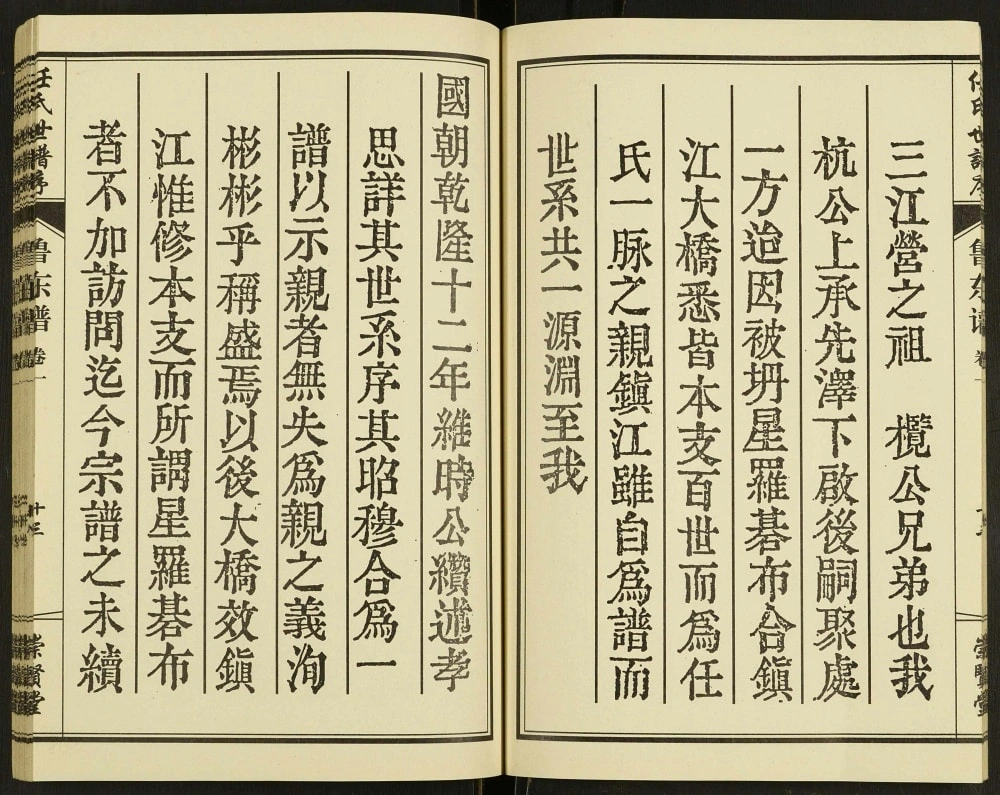 三江營之祖 欖公兄弟也我
杭公上承先澤下啟後嗣聚處
一方迨因被坍星羅碁布合鎮
江大橋悉皆本支百世而為任
氏一脉之親鎮江雖自為譜而
世系共一源淵至我
國朝乾隆十二年維時公纘述孝
思詳其世系序其昭穆合為一
譜以示親者無失為親之義洵
彬彬乎稱盛焉以後大橋效鎮
江惟修本支而所謂星羅碁布
者不加訪問迄今宗譜之未續
任氏世譜序
鲁东谱
卷一
十三
崇賢堂